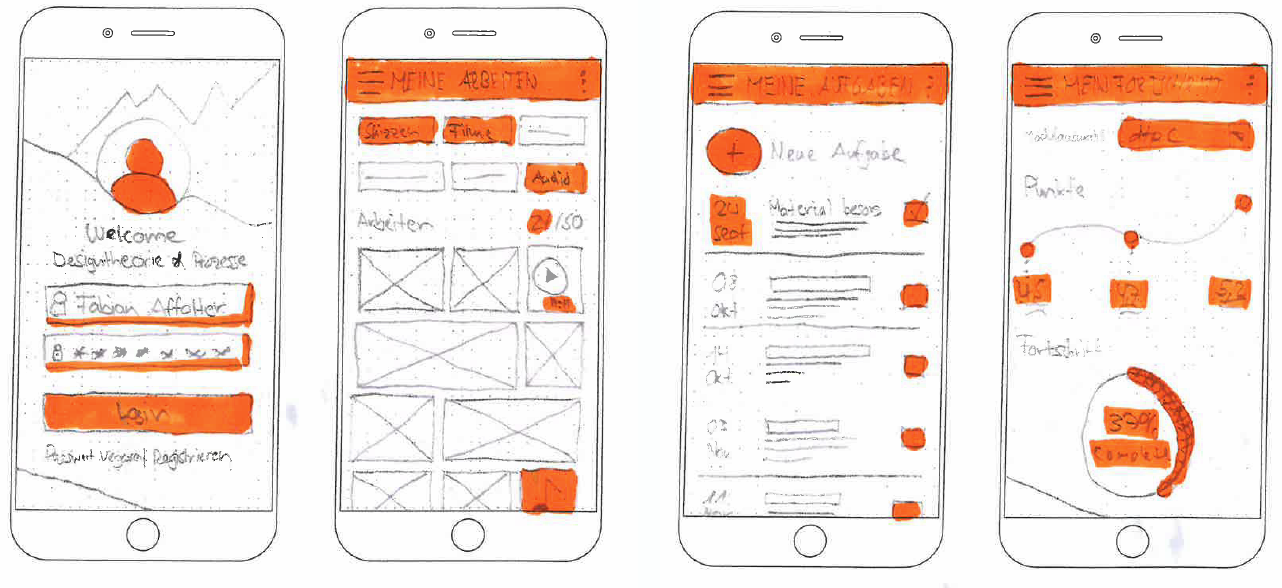 Welcome
Designtheorie & Prozesse
Fabian Affolter
Login
Passwort Registrieren
MEINE ARBEITEN
Skizzen
Filme
Audio
Arbeiten
/50
MEINE AUFGABEN
+ Neue Aufgabe
24 Sept
Material besor
03 Okt
14 Okt
03 Nov
11 Nov
MEIN FORTSCHRITT
Punkte
4.5
4.7
5.2
Fortschritt